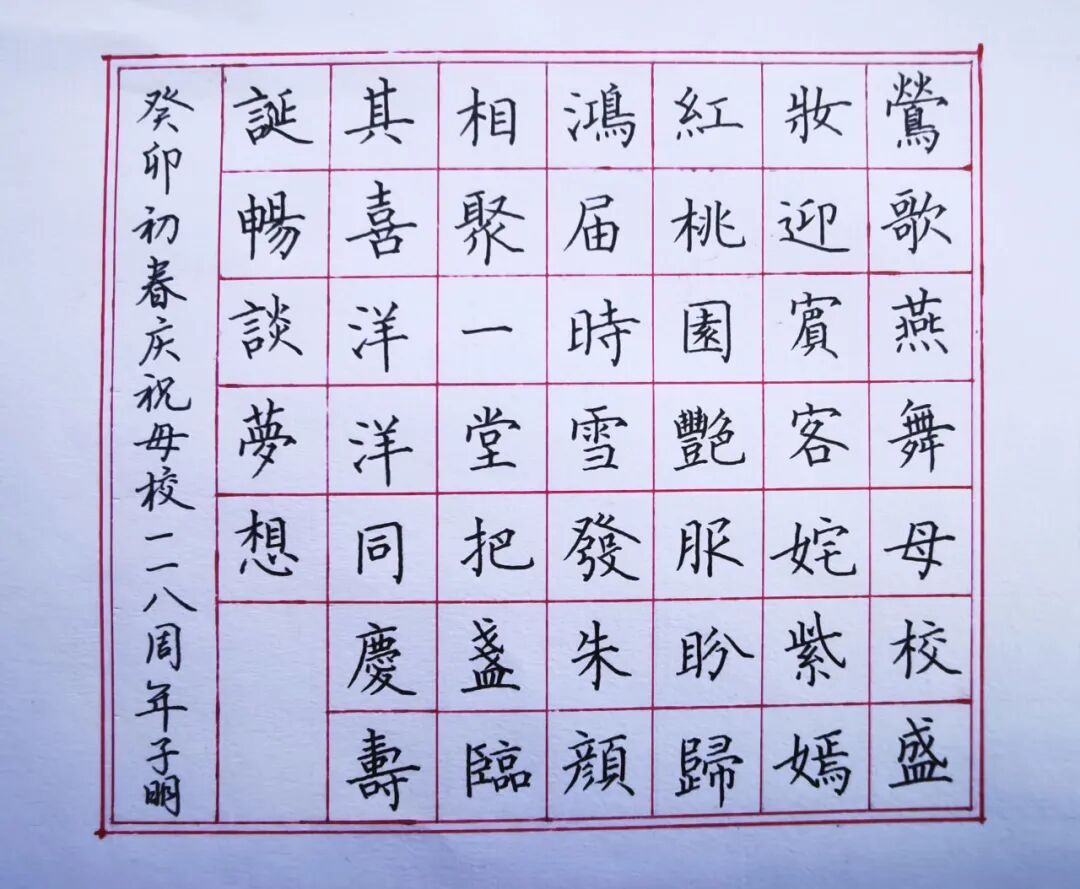 鶯歌燕舞母校盛
妝迎賓客姹紫嫣
紅桃園艷服盼歸
鴻届時雪發朱顔
相聚一堂把盞臨
其喜洋洋同慶壽
誕暢談夢想
癸卯初春庆祝母校一二八周年子明